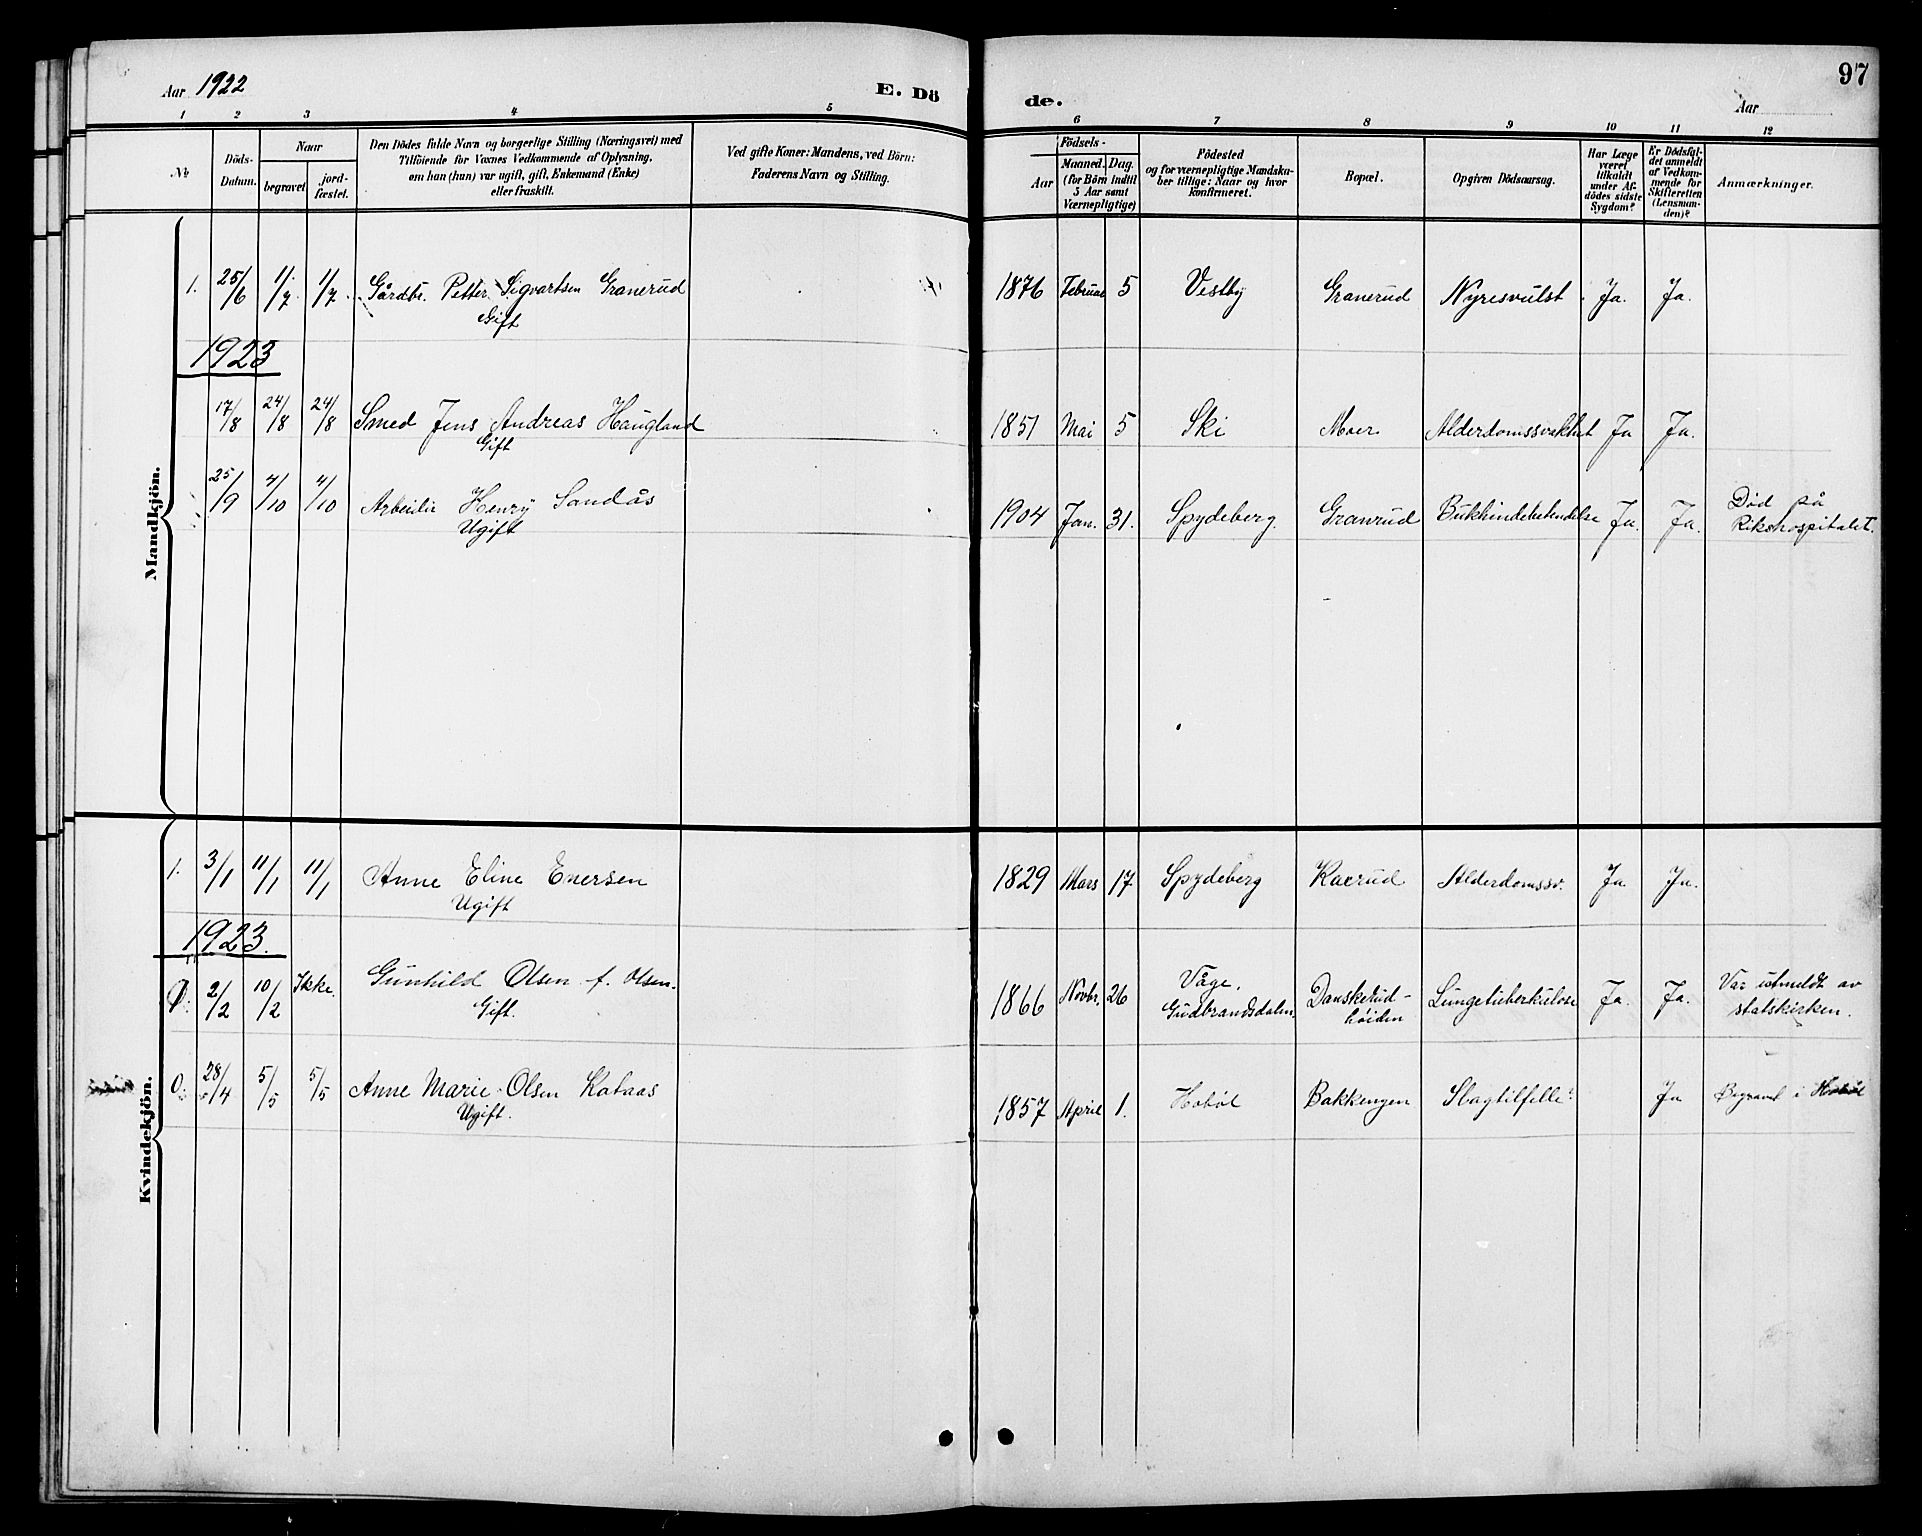 Aar 1922 E. Dö de. Aar 97
1 2 3 4 5 6 7 8 9 10 11 12
No
Döds-
Datum.
Naar
begravet
jord-
fæstet.
Den Dödes fulde Navn og borgerlige Stilling (Næringsvei) med
Tilföiende for Voxnes Vedkommende af Oplysning,
om han (hun) var ugift, gift, Enkemand (Enke)
eller fraskilt.
Ved gifte Koner: Mandens, ved Börn:
Faderens Navn og Stilling.
Födsels-
Aar
Maaned. Dag.
(for Börn indtil
5 Aar samt
Værnepligtige)
Födested
og for værnepligtige Mandska-
ber tillige: Naar og hvor
konfirmeret.
Bopæl.
Opgiven Dödsaarsag.
Har Læge
været
tilkaldt
under Af-
dödes sidste
Sygdom?
Er Dödsfal-
det anmeldt
af Vedkom-
mende for
Skifteretten
(Lensman-
den)?
Anmærkninger.
Mandkjön.
1. 25/6 1/7 1/7 Gårdbr. Petter Sigvartsen Granerud 1876 Februar 5 Vestby Granerud Nyresvulst Ja. Ja.
Gift
1923
17/8 24/8 24/8 Smed Jens Andreas Haugland 1851 Mai 5 Ski Moer Alderdomssvakhet Ja Ja.
Gift
25/9 4/10 4/10 Arbeider Henry Sandås 1904 Jan. 31. Spydeberg. Granrud Bukhindebetendelse Ja. Ja. Død på
Ugift Rikshospitalet.
Kvindekjön.
1. 3/1 11/1 11/1 Anne Eline Enersen 1829 Mars 17 Spydeberg Kaerud Alderdomssv. Ja Ja.
Ugift
1923.
2/2 10/2 Ikke. Gunhild Olsen f. Olsen. 1866 Novbr. 26 Våge, Danskerud- Lungetuberkulose Ja. Ja. Var utmeldt av
Gift. Gudbrandsdalen. høiden statskirken.
0. 28/4 5/5 5/5 Anne Marie Olsen Kataas 1857 April 1. Hobøl Bakkengen Slagtilfelle? Ja Begravet i Hobøl
Ugift.